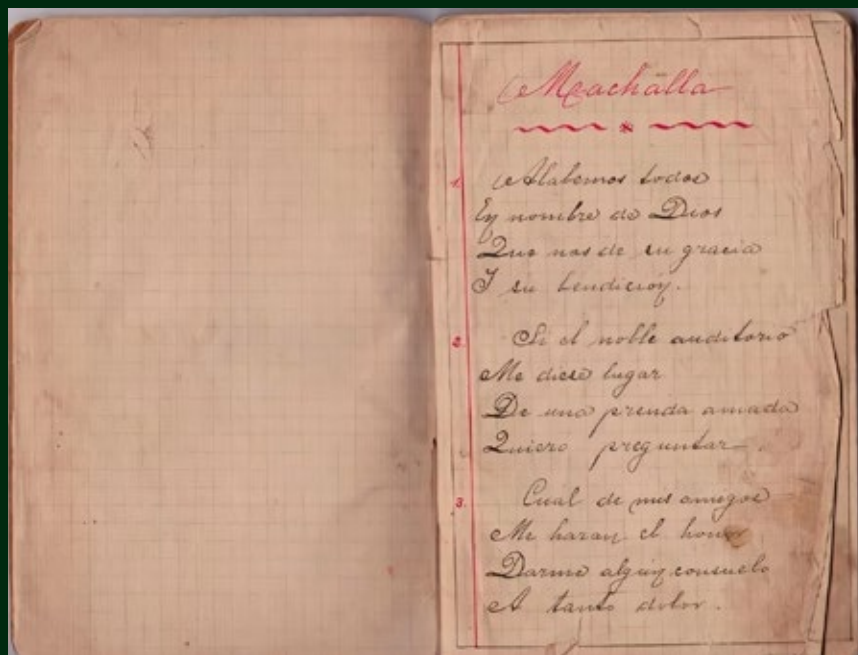 Machalla
1. Alabemos todos
En nombre de Dios
Que nos de su gracia
I su bendicion.
2. Si el noble auditorio
Me diese lugar
De una prenda amada
Quiero preguntar.
3. Cual de mis amigos
Me haran el honor
Darme algun consuelo
A tanto dolor.